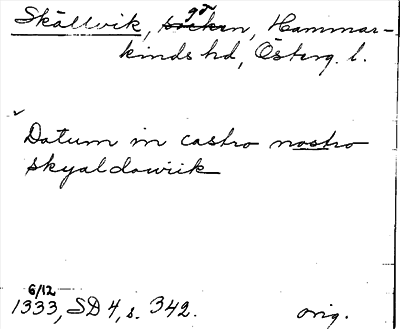 Skällvik, gd, Hammar-
kinds hd, Österg. l.
Datum in castro nostro
skyaldawiik
6/12
1333, SD 4, s. 342. orig.